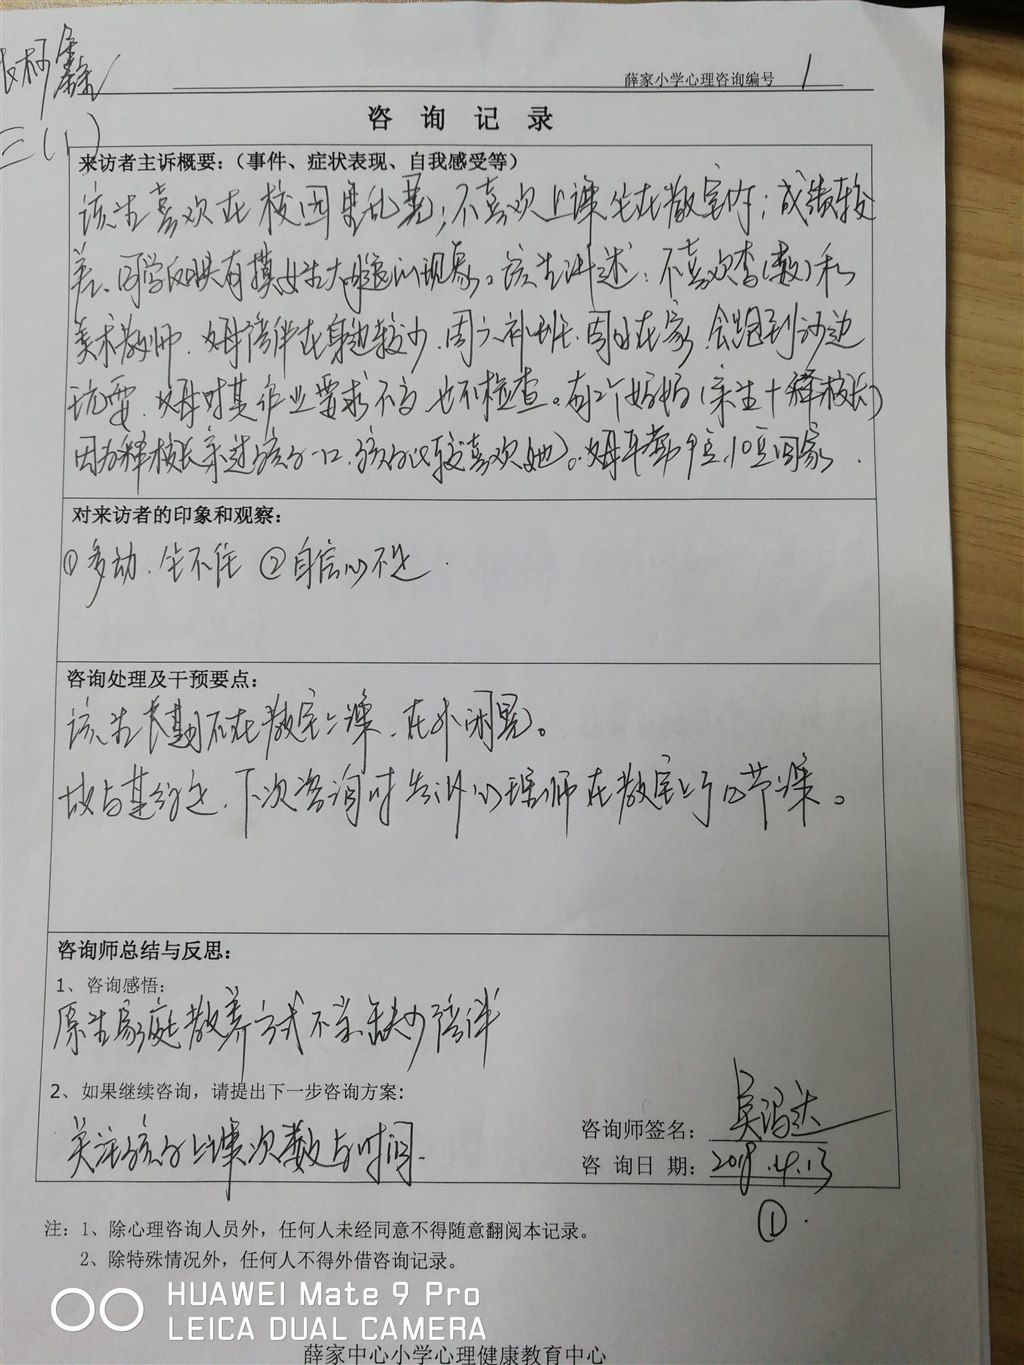 三(1)
薛家小学心理咨询编号 1
咨 询 记 录
来访者主诉概要：（事件、症状表现、自我感受等）
该生喜欢在校园里乱晃；不喜欢上课坐在教室内；成绩较
差、同学反映有摸女生大腿的现象。该生讲述：不喜欢李(数)和
美术教师．父母陪伴在身边较少．周六补班．周日在家．会跑到沙边
玩耍．父母对其作业要求不高 也不检查。有2个妈妈(亲生+释校长)
因为释校长亲过孩子一口．孩子比较喜欢她)。父母平常9点．10点回家．
对来访者的印象和观察：
①多动．坐不住 ②自信心不足．
咨询处理及干预要点：
该生长期不在教室上课．在外闲晃。
故与其约定．下次咨询时告诉心理师在教室上了几节课。
咨询师总结与反思：
1、咨询感悟：
原生家庭教养方式不当．缺少陪伴
2、如果继续咨询，请提出下一步咨询方案：
关注孩子上课次数与时间．
咨询师签名：
咨 询 日 期：2018.4.13
①.
注：1、除心理咨询人员外，任何人未经同意不得随意翻阅本记录。
2、除特殊情况外，任何人不得外借咨询记录。
HUAWEI Mate 9 Pro
LEICA DUAL CAMERA
薛家中心小学心理健康教育中心